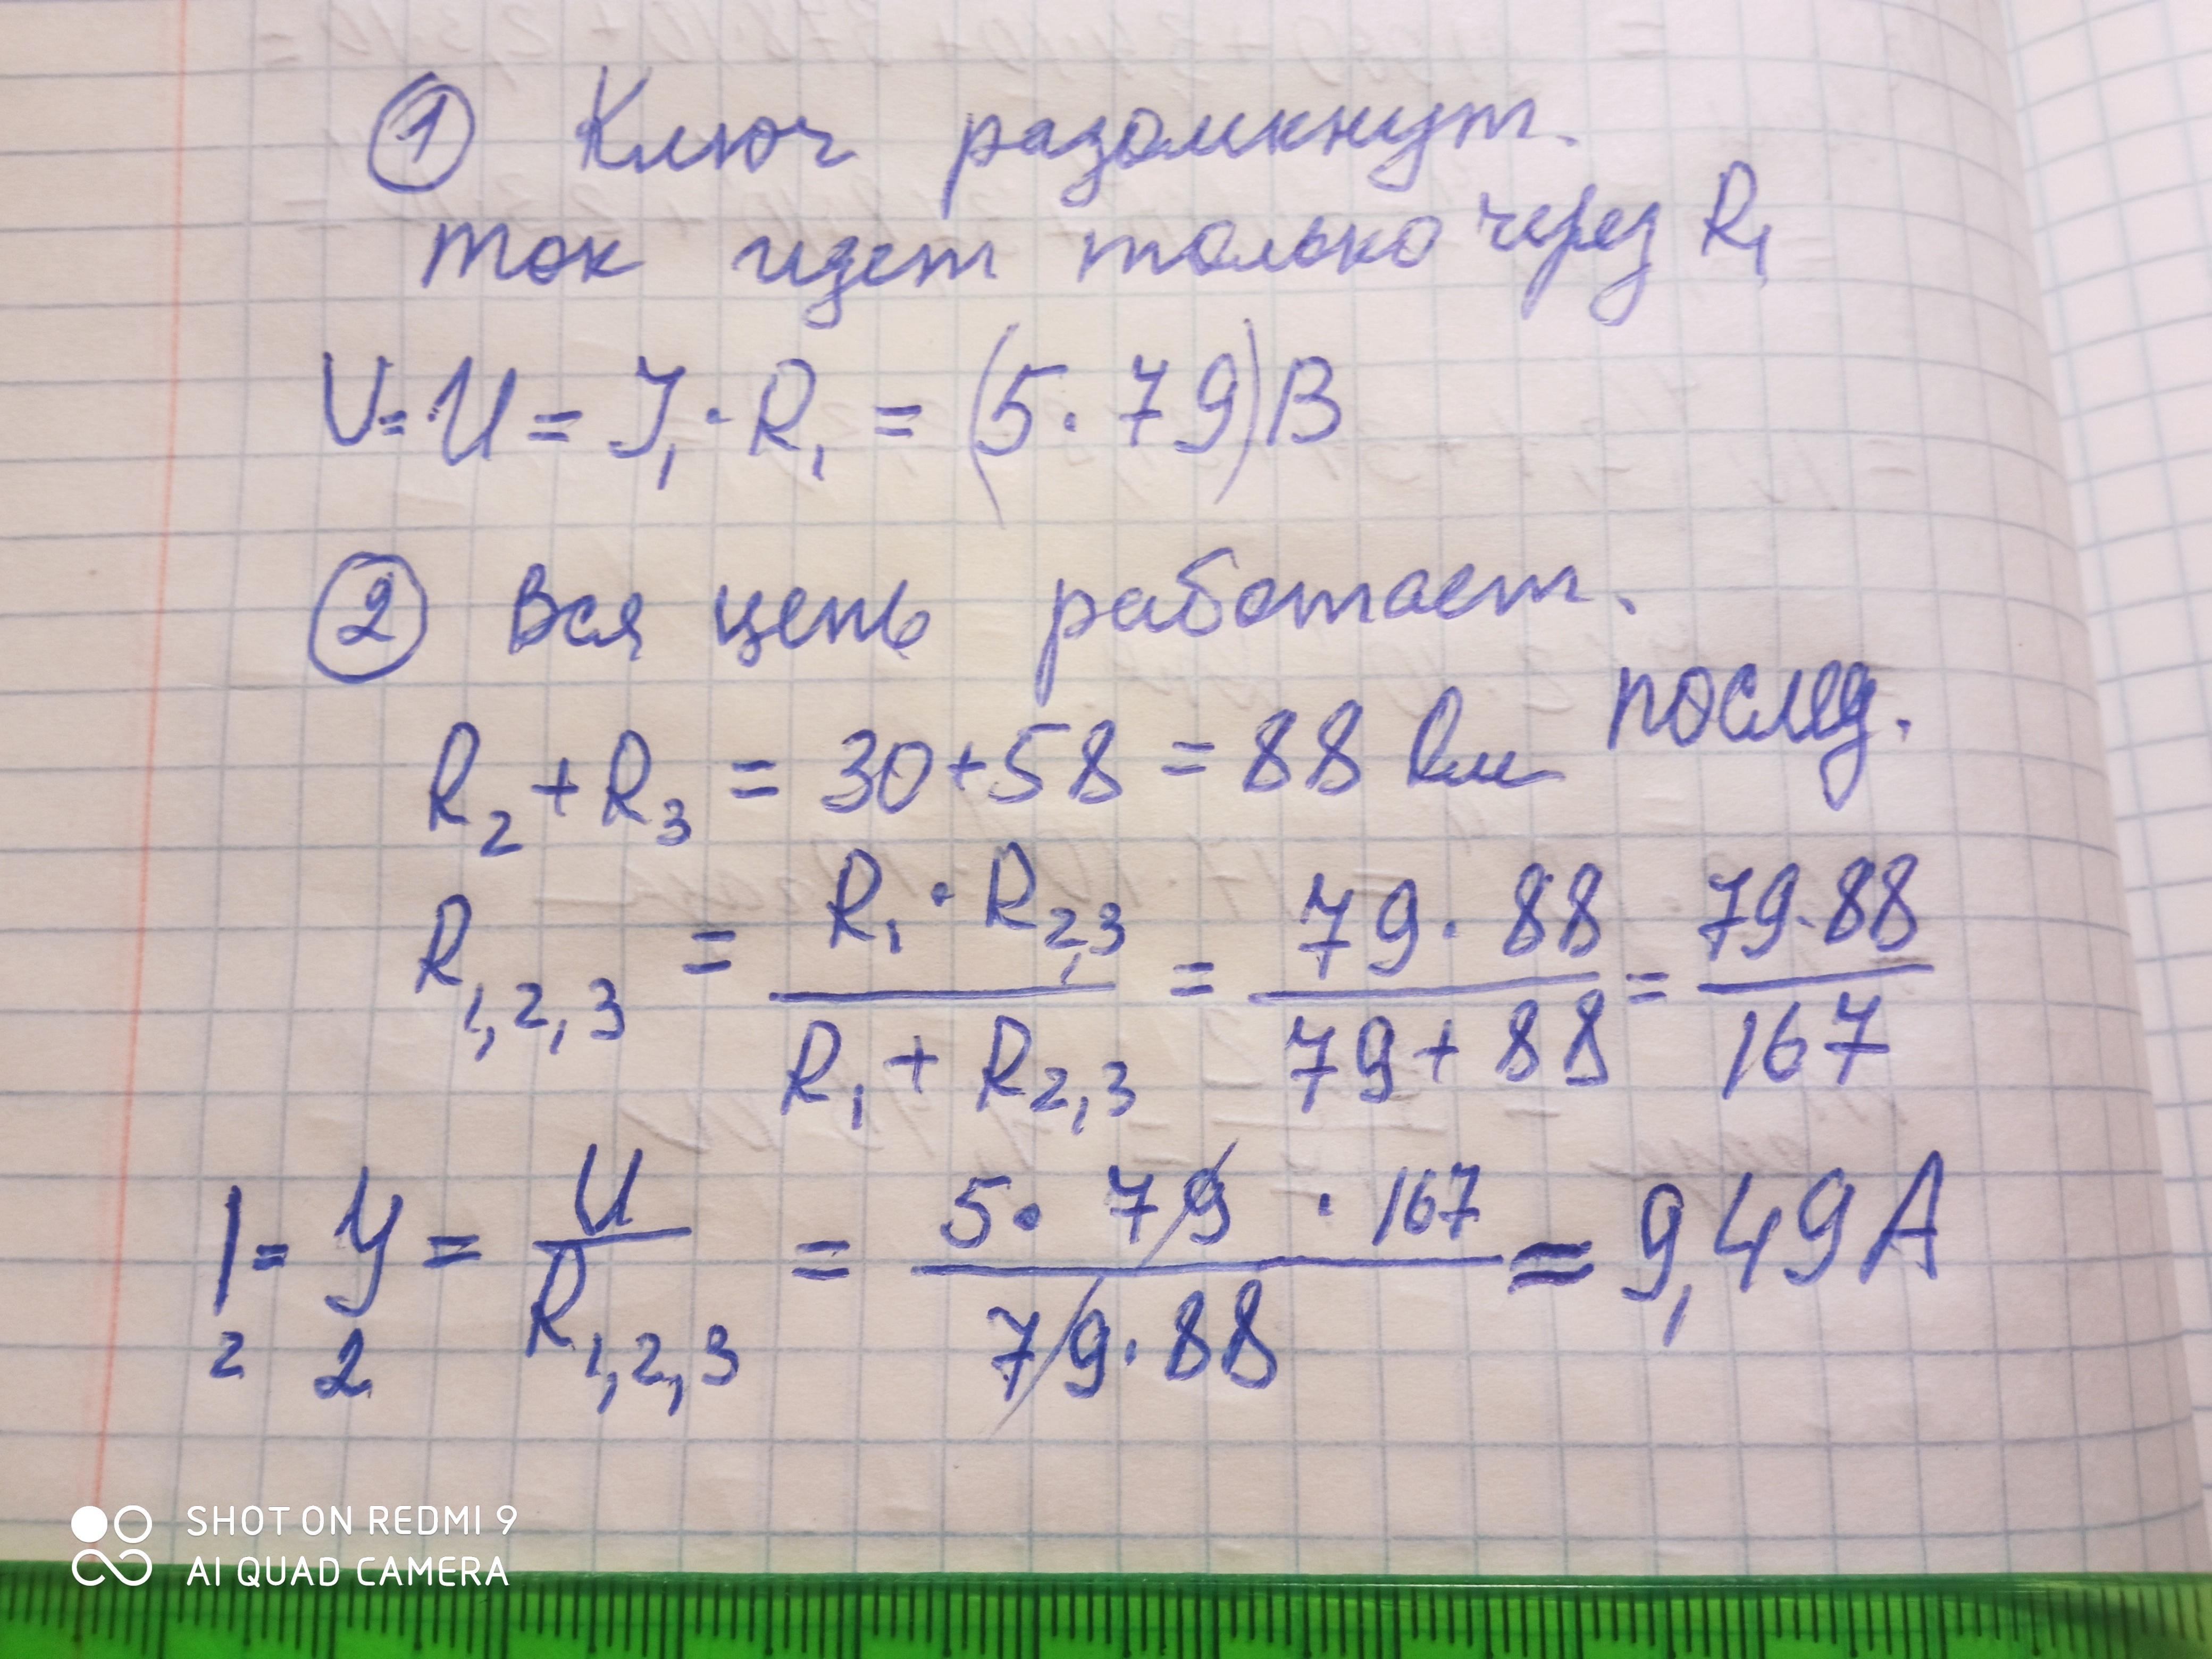 ① Ключ разомкнут.
ток идет только через R₁
U = U = I₁ · R₁ = (5 · 79) В
② Вся цепь работает.
R₂ + R₃ = 30 + 58 = 88 Ом послед.
R₁,₂,₃ = (R₁ · R₂,₃) / (R₁ + R₂,₃) = (79 · 88) / (79 + 88) = (79 · 88) / 167
I₂ = I₂ = U / R₁,₂,₃ = (5 · 79 · 167) / (79 · 88) = 9,49 А
SHOT ON REDMI 9
AI QUAD CAMERA